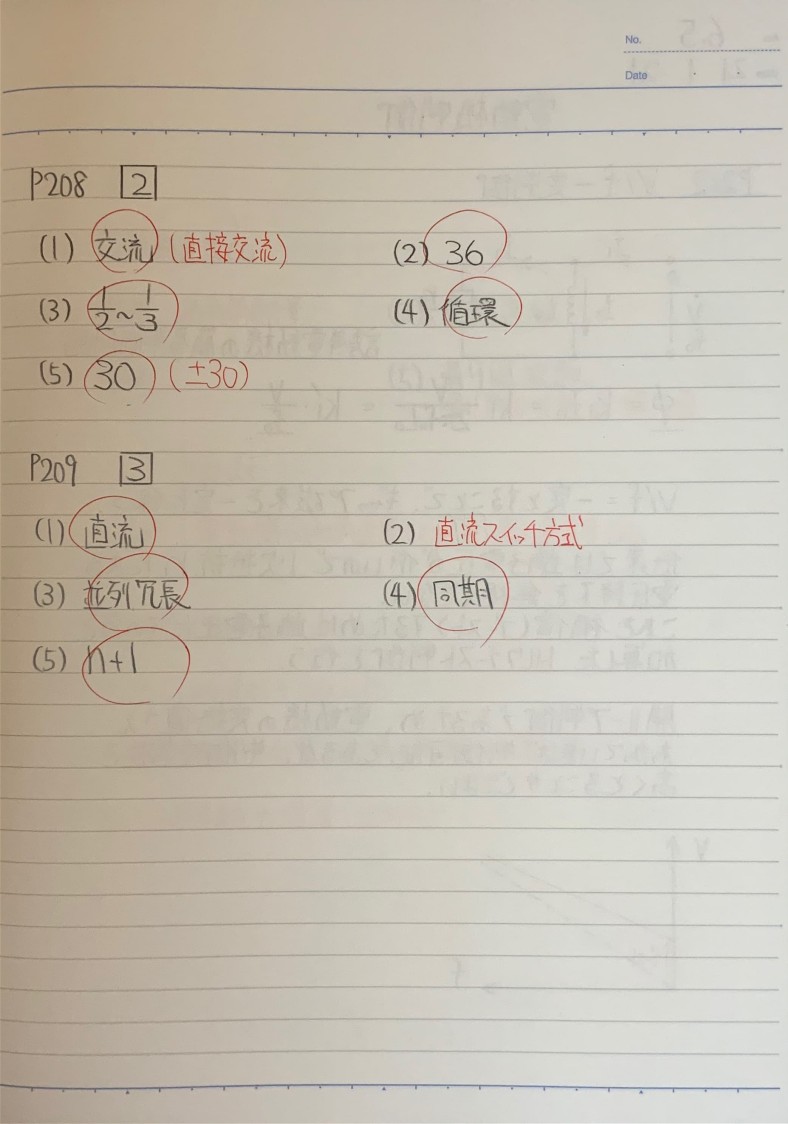 No.
Date
P208 2
(1) 交流 (直接交流) (2) 36
(3) 1/2~1/3 (4) 循環
(5) 30 (±30)
P209 3
(1) 直流 (2) 直流スイッチ方式
(3) 並列冗長 (4) 同期
(5) n+1